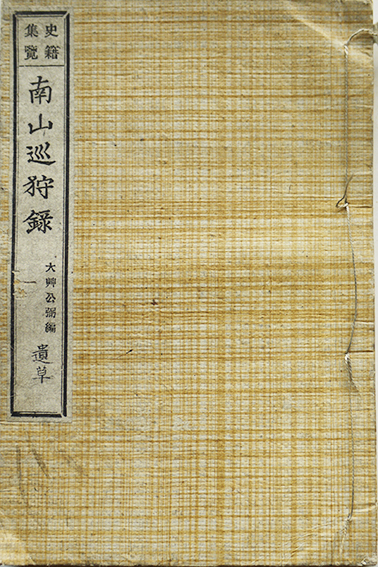 史籍
集覽
南山巡狩錄
大艸公弼編
遺草